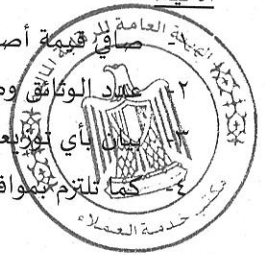 صافي قيمة أصـ
٢- عدد الوثائق وصـ
٣- بيان بأي توزيعـ
٤- كما تلتزم بموافـ
الهيئة العامة للرقابة المالية
خدمة العملاء